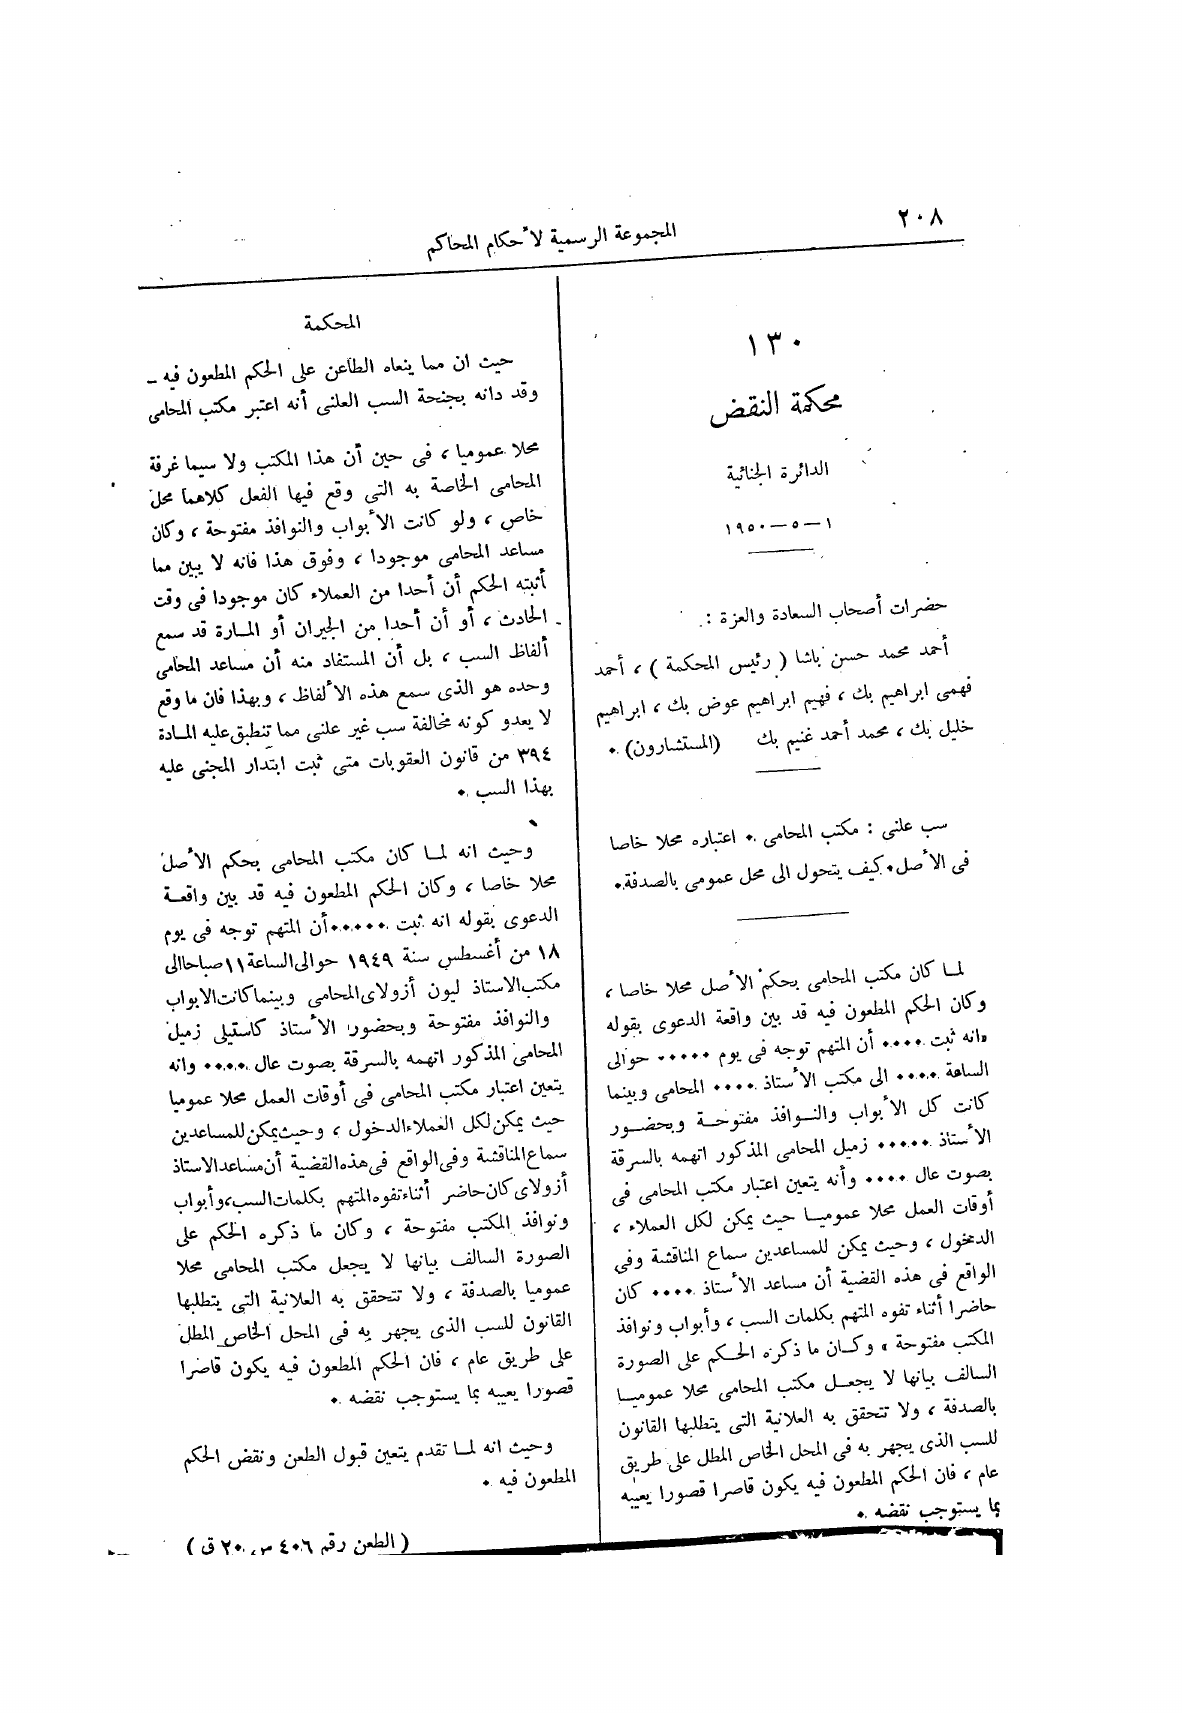 ٢٠٨
المجموعة الرسمية لأحكام المحاكم
١٣٠
محكمة النقض
الدائرة الجنائية
١ — ٥ — ١٩٥٠
حضرات أصحاب السعادة والعزة :
أحمد محمد حسن باشا ( رئيس المحكمة ) ، أحمد
فهمى ابراهيم بك ، فهيم ابراهيم عوض بك ، ابراهيم
خليل بك ، محمد أحمد غنيم بك (المستشارون) .
سب علنى : مكتب المحامى . اعتباره محلا خاصا
فى الأصل . كيف يتحول الى محل عمومى بالصدفة .
لما كان مكتب المحامى بحكم الأصل محلا خاصا ،
وكان الحكم المطعون فيه قد بين واقعة الدعوى بقوله
«انه ثبت .... أن المتهم توجه فى يوم ..... حوالى
الساعة .... الى مكتب الأستاذ .... المحامى وبينما
كانت كل الأبواب والنوافذ مفتوحة وبحضور
الأستاذ ..... زميل المحامى المذكور اتهمه بالسرقة
بصوت عال .... وأنه يتعين اعتبار مكتب المحامى فى
أوقات العمل محلا عموميا حيث يمكن لكل العملاء ،
الدخول ، وحيث يمكن للمساعدين سماع المناقشة وفى
الواقع فى هذه القضية أن مساعد الأستاذ .... كان
حاضرا أثناء تفوه المتهم بكلمات السب ، وأبواب ونوافذ
المكتب مفتوحة » وكان ما ذكره الحكم على الصورة
السالف بيانها لا يجعل مكتب المحامى محلا عموميا
بالصدفة ، ولا تتحقق به العلانية التى يتطلبها القانون
للسب الذى يجهر به فى المحل الخاص المطل على طريق
عام ، فان الحكم المطعون فيه يكون قاصرا قصورا يعيبه
بما يستوجب نقضه .
المحكمة
حيث ان مما ينعاه الطاعن على الحكم المطعون فيه —
وقد دانه بجنحة السب العلنى أنه اعتبر مكتب المحامى
محلا عموميا ، فى حين أن هذا المكتب ولا سيما غرفة
المحامى الخاصة به التى وقع فيها الفعل كلاهما محل
خاص ، ولو كانت الأبواب والنوافذ مفتوحة ، وكان
مساعد المحامى موجودا ، وفوق هذا فانه لا يبين مما
أثبته الحكم أن أحدا من العملاء كان موجودا فى وقت
الحادث ، أو أن أحدا من الجيران أو المارة قد سمع
ألفاظ السب ، بل أن المستفاد منه أن مساعد المحامى
وحده هو الذى سمع هذه الألفاظ ، وبهذا فان ما وقع
لا يعدو كونه مخالفة سب غير علنى مما تنطبق عليه المادة
٣٩٤ من قانون العقوبات متى ثبت ابتدار المجنى عليه
بهذا السب .
وحيث انه لما كان مكتب المحامى بحكم الأصل
محلا خاصا ، وكان الحكم المطعون فيه قد بين واقعة
الدعوى بقوله انه ثبت ......أن المتهم توجه فى يوم
١٨ من أغسطس سنة ١٩٤٩ حوالى الساعة ١١ صباحا الى
مكتب الاستاذ ليون أزولاى المحامى وبينما كانت الابواب
والنوافذ مفتوحة وبحضور الأستاذ كاستيلى زميل
المحامى المذكور اتهمه بالسرقة بصوت عال ..... وانه
يتعين اعتبار مكتب المحامى فى أوقات العمل محلا عموميا
حيث يمكن لكل العملاء الدخول ، وحيث يمكن للمساعدين
سماع المناقشة وفى الواقع فى هذه القضية أن مساعد الاستاذ
أزولاى كان حاضر أثناء تفوه المتهم بكلمات السب، وأبواب
ونوافذ المكتب مفتوحة ، وكان ما ذكره الحكم على
الصورة السالف بيانها لا يجعل مكتب المحامى محلا
عموميا بالصدفة ، ولا تتحقق به العلانية التى يتطلبها
القانون للسب الذى يجهر به فى المحل الخاص المطل
على طريق عام ، فان الحكم المطعون فيه يكون قاصرا
قصورا يعيبه بما يستوجب نقضه .
وحيث انه لما تقدم يتعين قبول الطعن ونقض الحكم
المطعون فيه .
( الطعن رقم ٤٠٦ س ٢٠ ق )